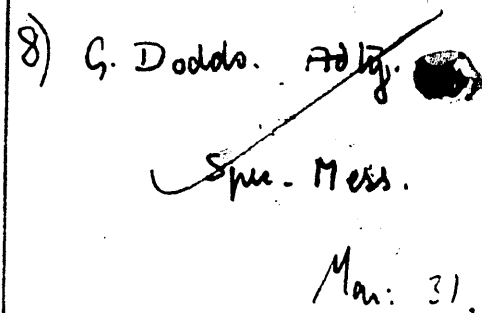 8) G. Dodds. Adlg.
Spec. Mess.
Mar: 31.